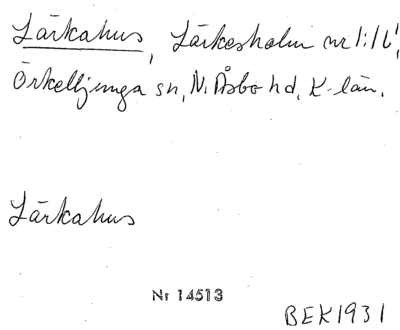 Lärkahus, Lärkesholm nr 1:16¹,
Örkelljunga sn, N. Åsbo hd, K-län.
Lärkahus
Nr 14513
BEK1931